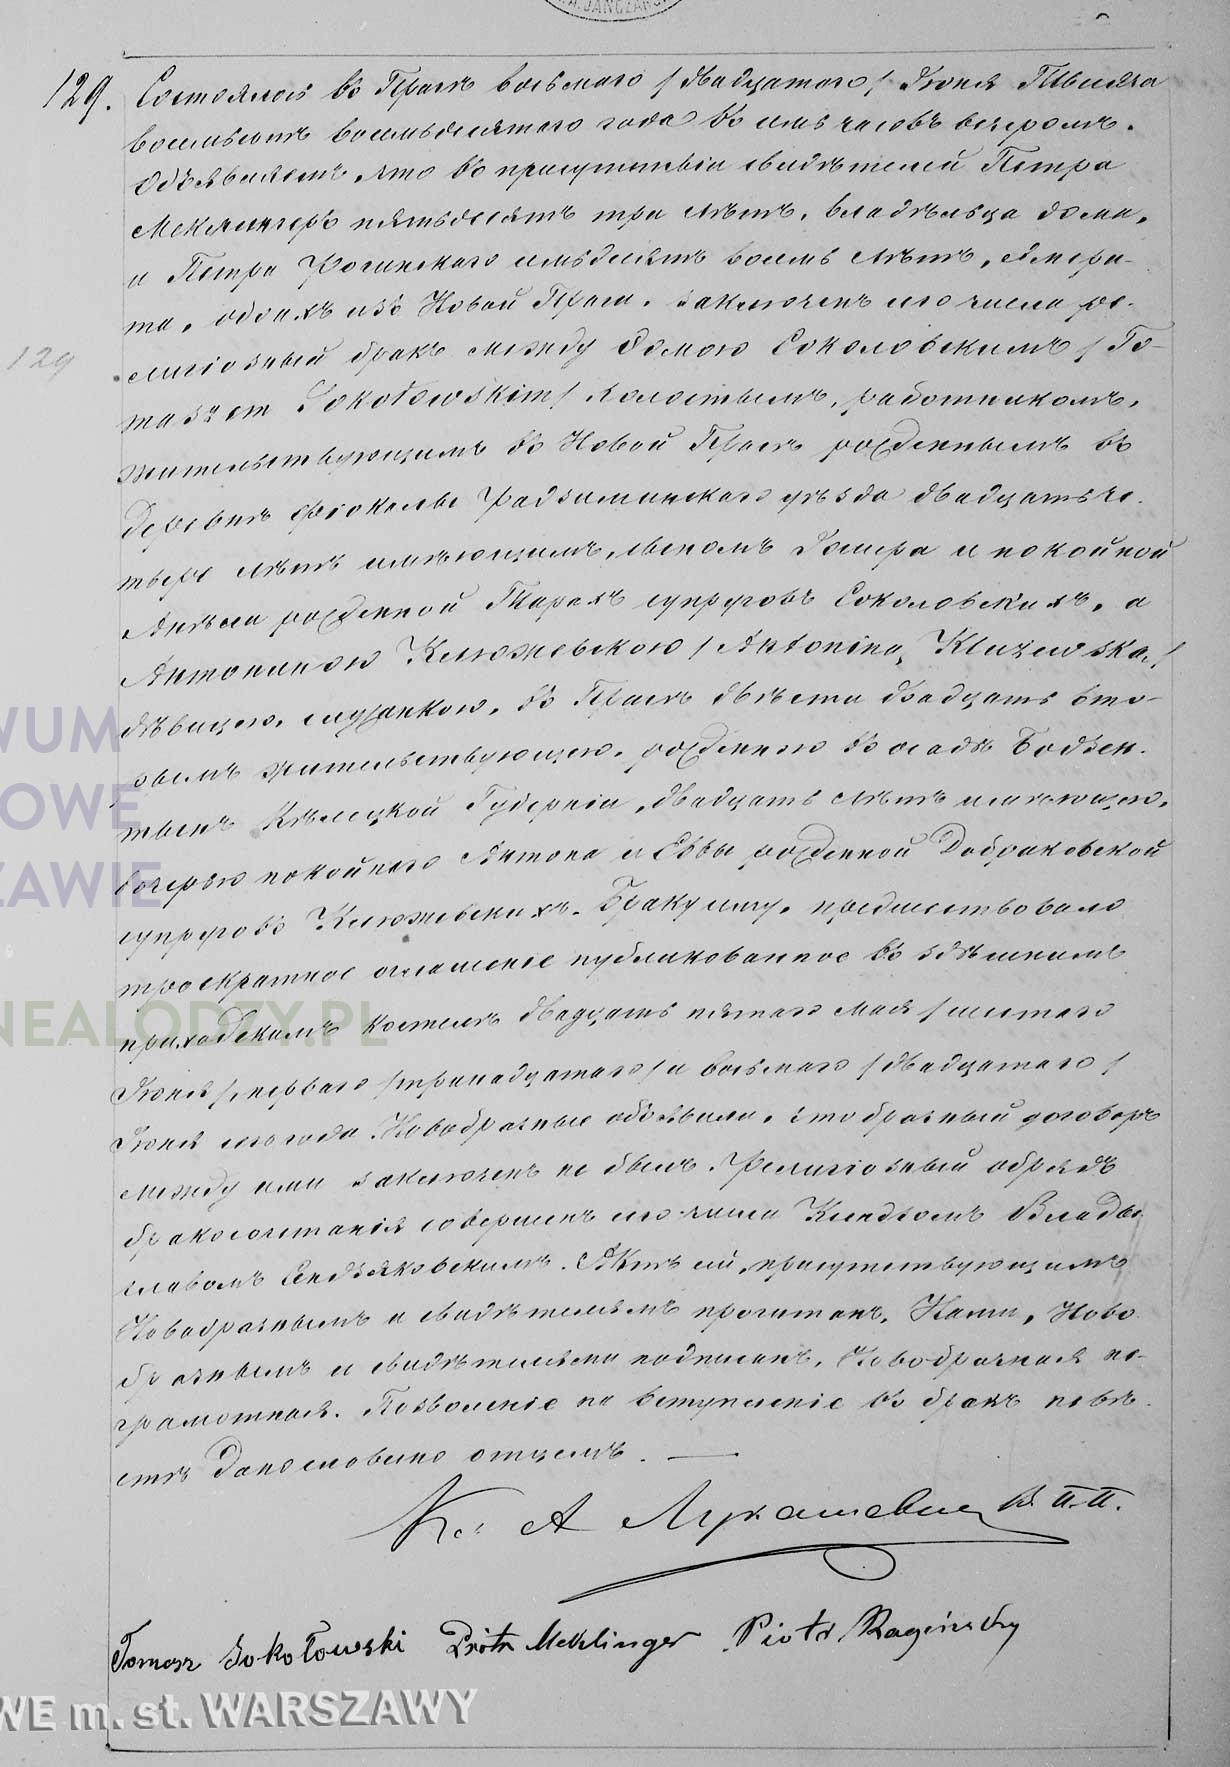 129. Состоялось въ Прагѣ восьмаго /двадцатаго/ Іюня Тысяча
восемьсотъ восемьдесятаго года въ семь часовъ вечеромъ.
Объявляемъ, что въ присутствіи свидѣтелей Петра
Меклингеръ пятьдесятъ три лѣтъ, владѣльца дома,
и Петра Рогинскаго семьдесятъ восемь лѣтъ, емери-
та, обоихъ изъ Новой Праги, заключенъ сего числа ре-
129
лигіозный бракъ между Ѳомою Соколовскимъ /To-
maszem Sokołowskim/ холостымъ, работникомъ,
жительствующимъ въ Новой Прагѣ рожденнымъ въ
деревнѣ Фіокалы Радзиминскаго уѣзда двадцать че-
тыре лѣтъ имѣющимъ, сыномъ и покойной
Анѣли рожденной супруговъ Соколовскихъ, а
Антониною Клюжевскою /Antoniną Klużewską/
дѣвицею, служанкою, въ Прагѣ двѣсти двадцать вто-
рымъ жительствующею, рожденною въ осадѣ Бодзен-
тынъ Кѣлецкой Губерніи, двадцать лѣтъ имѣющею,
дочерью покойнаго Антона и Еввы рожденной Добраковской
супруговъ Клюжевскихъ. Браку сему предшествовало
троекратное оглашеніе публикованное въ здѣшнемъ
приходскомъ костелѣ двадцать пятаго Мая /шестаго
Іюня/, перваго /тринадцатаго/ и восьмаго /двадцатаго/
Іюня сего года. Новобрачные объявили, что брачный договоръ
между ими заключенъ не былъ. Религіозный обрядъ
бракосочетанія совершенъ сего числа Ксендзомъ Влады-
славомъ Сендзяковскимъ. Актъ сей, присутствующимъ
Новобрачнымъ и свидѣтелямъ прочитанъ, Нами, Ново-
брачнымъ и свидѣтелями подписанъ, Новобрачная не-
грамотная. Позволеніе на вступленіе въ бракъ невѣ-
стѣ дано словесно отцемъ. —
Кс: А Лукашевич В. П. П.
Tomasz Sokołowski Piotr Meklinger Piotr Raginsky
WUM
OWE
ZAWIE
NEALODZY.PL
WE m. st. WARSZAWY